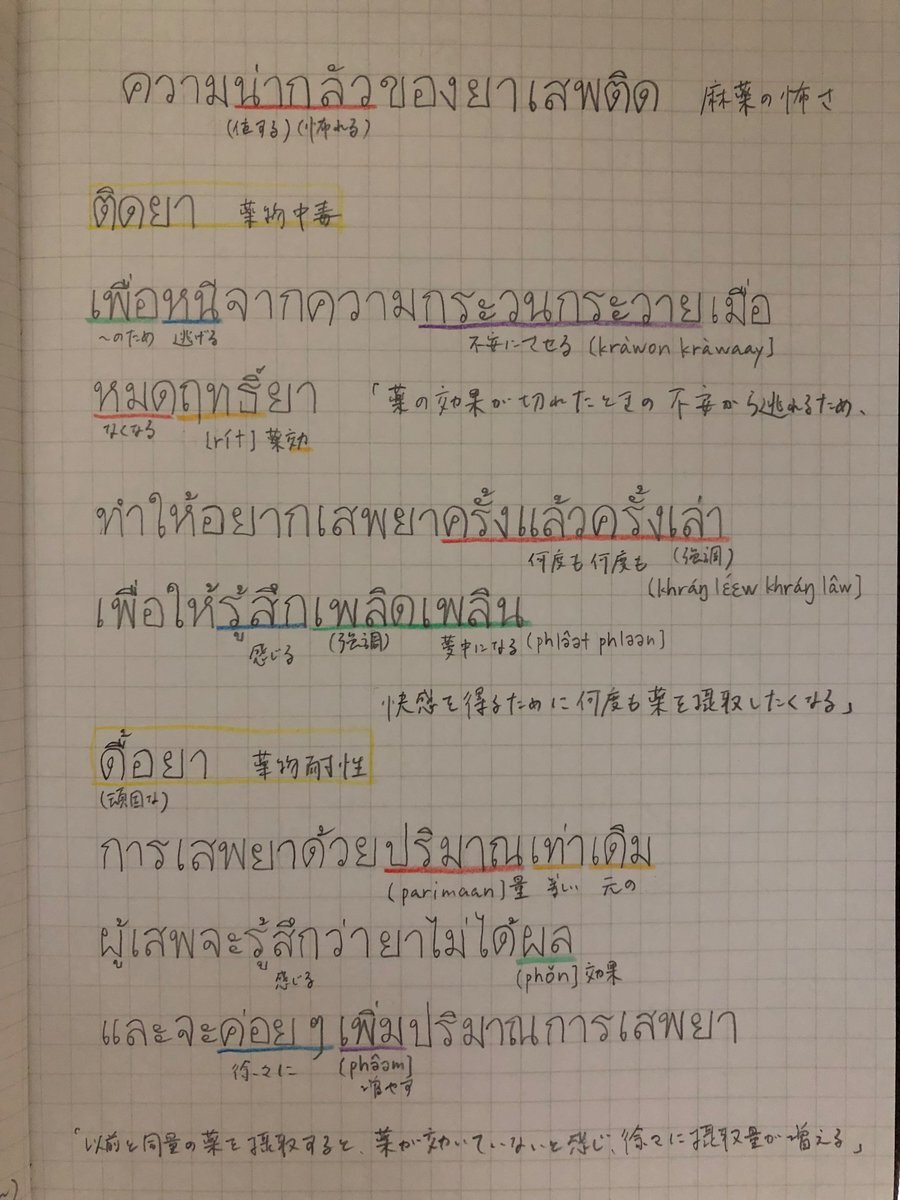 ความน่ากลัวของยาเสพติด 麻薬の怖さ
(値する)(怖れる)
ติดยา 薬物中毒
เพื่อหนีจากความกระวนกระวายเมื่อ
〜のため 逃げる 不安にさせる [kràwon kràwaay]
หมดฤทธิ์ยา 「薬の効果が切れたときの不安から逃れるため、
なくなる [rít] 薬効
ทำให้อยากเสพยาครั้งแล้วครั้งเล่า
何度も何度も (強調)
(khráŋ lɛ́ɛw khráŋ lâw]
เพื่อให้รู้สึกเพลิดเพลิน
感じる (強調) 夢中になる (phlə̂ət phləən]
快感を得るために何度も薬を摂取したくなる」
ดื้อยา 薬物耐性
(頑固な)
การเสพยาด้วยปริมาณเท่าเดิม
(parimaan]量 等しい 元の
ผู้เสพจะรู้สึกว่ายาไม่ได้ผล
感じる (phǒn] 効果
และจะค่อย ๆ เพิ่มปริมาณการเสพยา
徐々に (phə̂əm]
増やす
「以前と同量の薬を摂取すると、薬が効いていないと感じ、徐々に摂取量が増える」